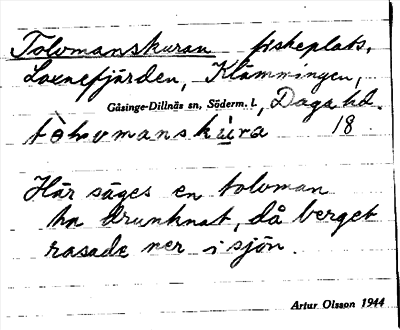 Tolvmanskuran fiskeplats,
Laxnefjärden, Klämmingen,
Gåsinge-Dillnäs sn, Söderm. l., Daga hd.
tòlvmanskùra 18
Här säges en tolvman
ha drunknat, då berget
rasade ner i sjön.
Artur Olsson 1944